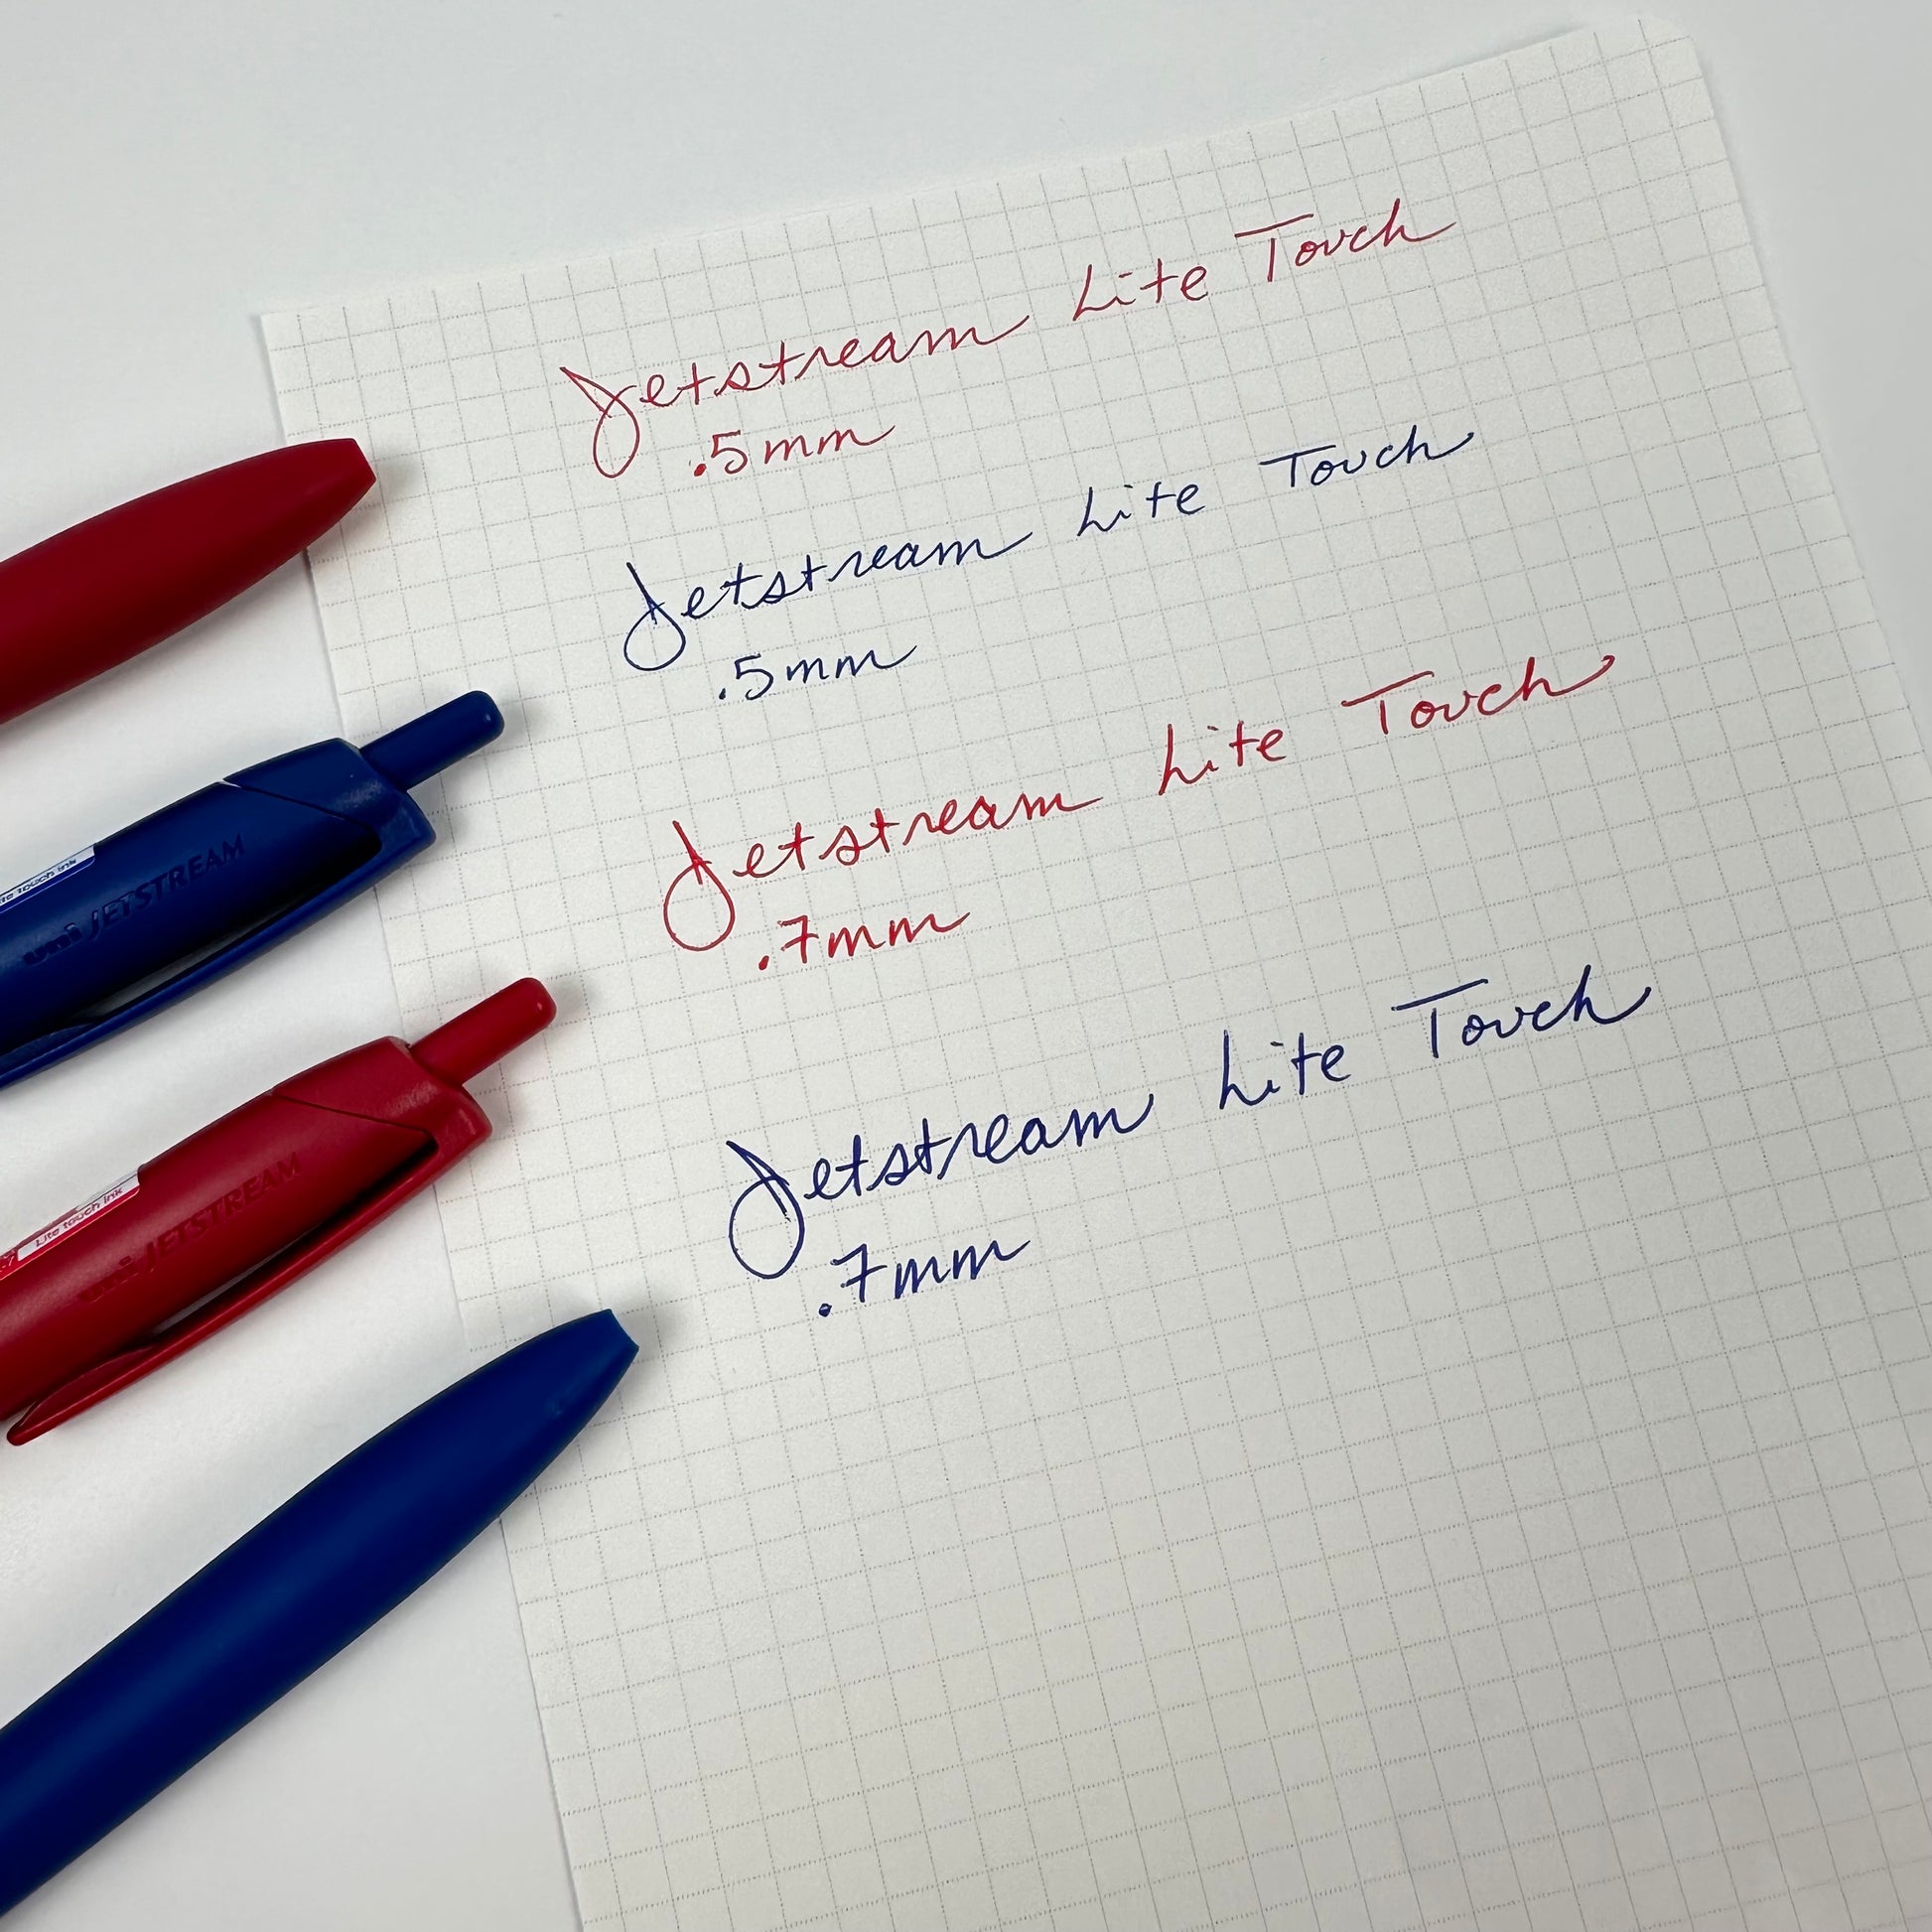 Jetstream Lite Touch
.5mm
Jetstream Lite Touch
.5mm
Jetstream Lite Touch
.7mm
Jetstream Lite Touch
.7mm
touch ink
uni JETSTREAM
Lite touch ink
uni JETSTREAM